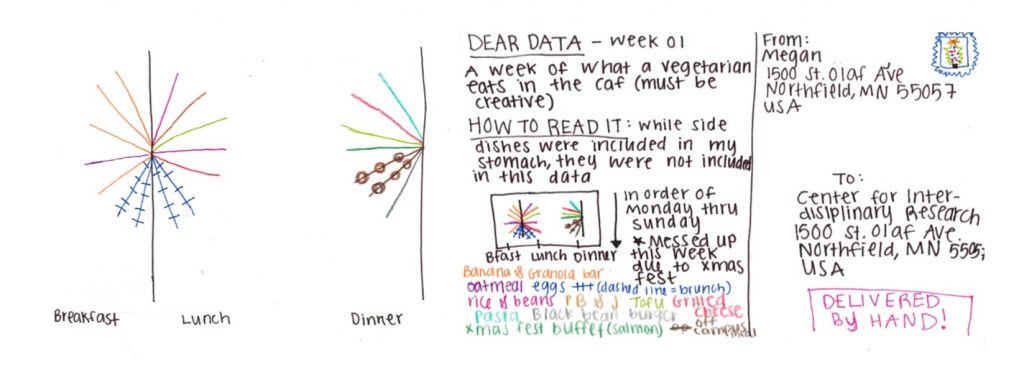 Breakfast
Lunch
Dinner
DEAR DATA - week 01
A week of what a vegetarian
eats in the caf (must be
creative)
HOW TO READ IT: while side
dishes were included in my
stomach, they were not included
in this data
in order of
Monday thru
Sunday
* Messed up
this week
due to xmas
fest
Bfast Lunch Dinner
Banana & Granola bar
oatmeal eggs +++ (dashed line = brunch)
rice & beans PB & J Tofu Grilled
cheese
Pasta Black bean burger
off
campus meal
xmas fest buffet (salmon)
From:
Megan
1500 St. Olaf Ave
Northfield, MN 55057
USA
To:
Center for Inter-
disiplinary Research
1500 St. Olaf Ave.
Northfield, MN 5505;
USA
DELIVERED
BY HAND!